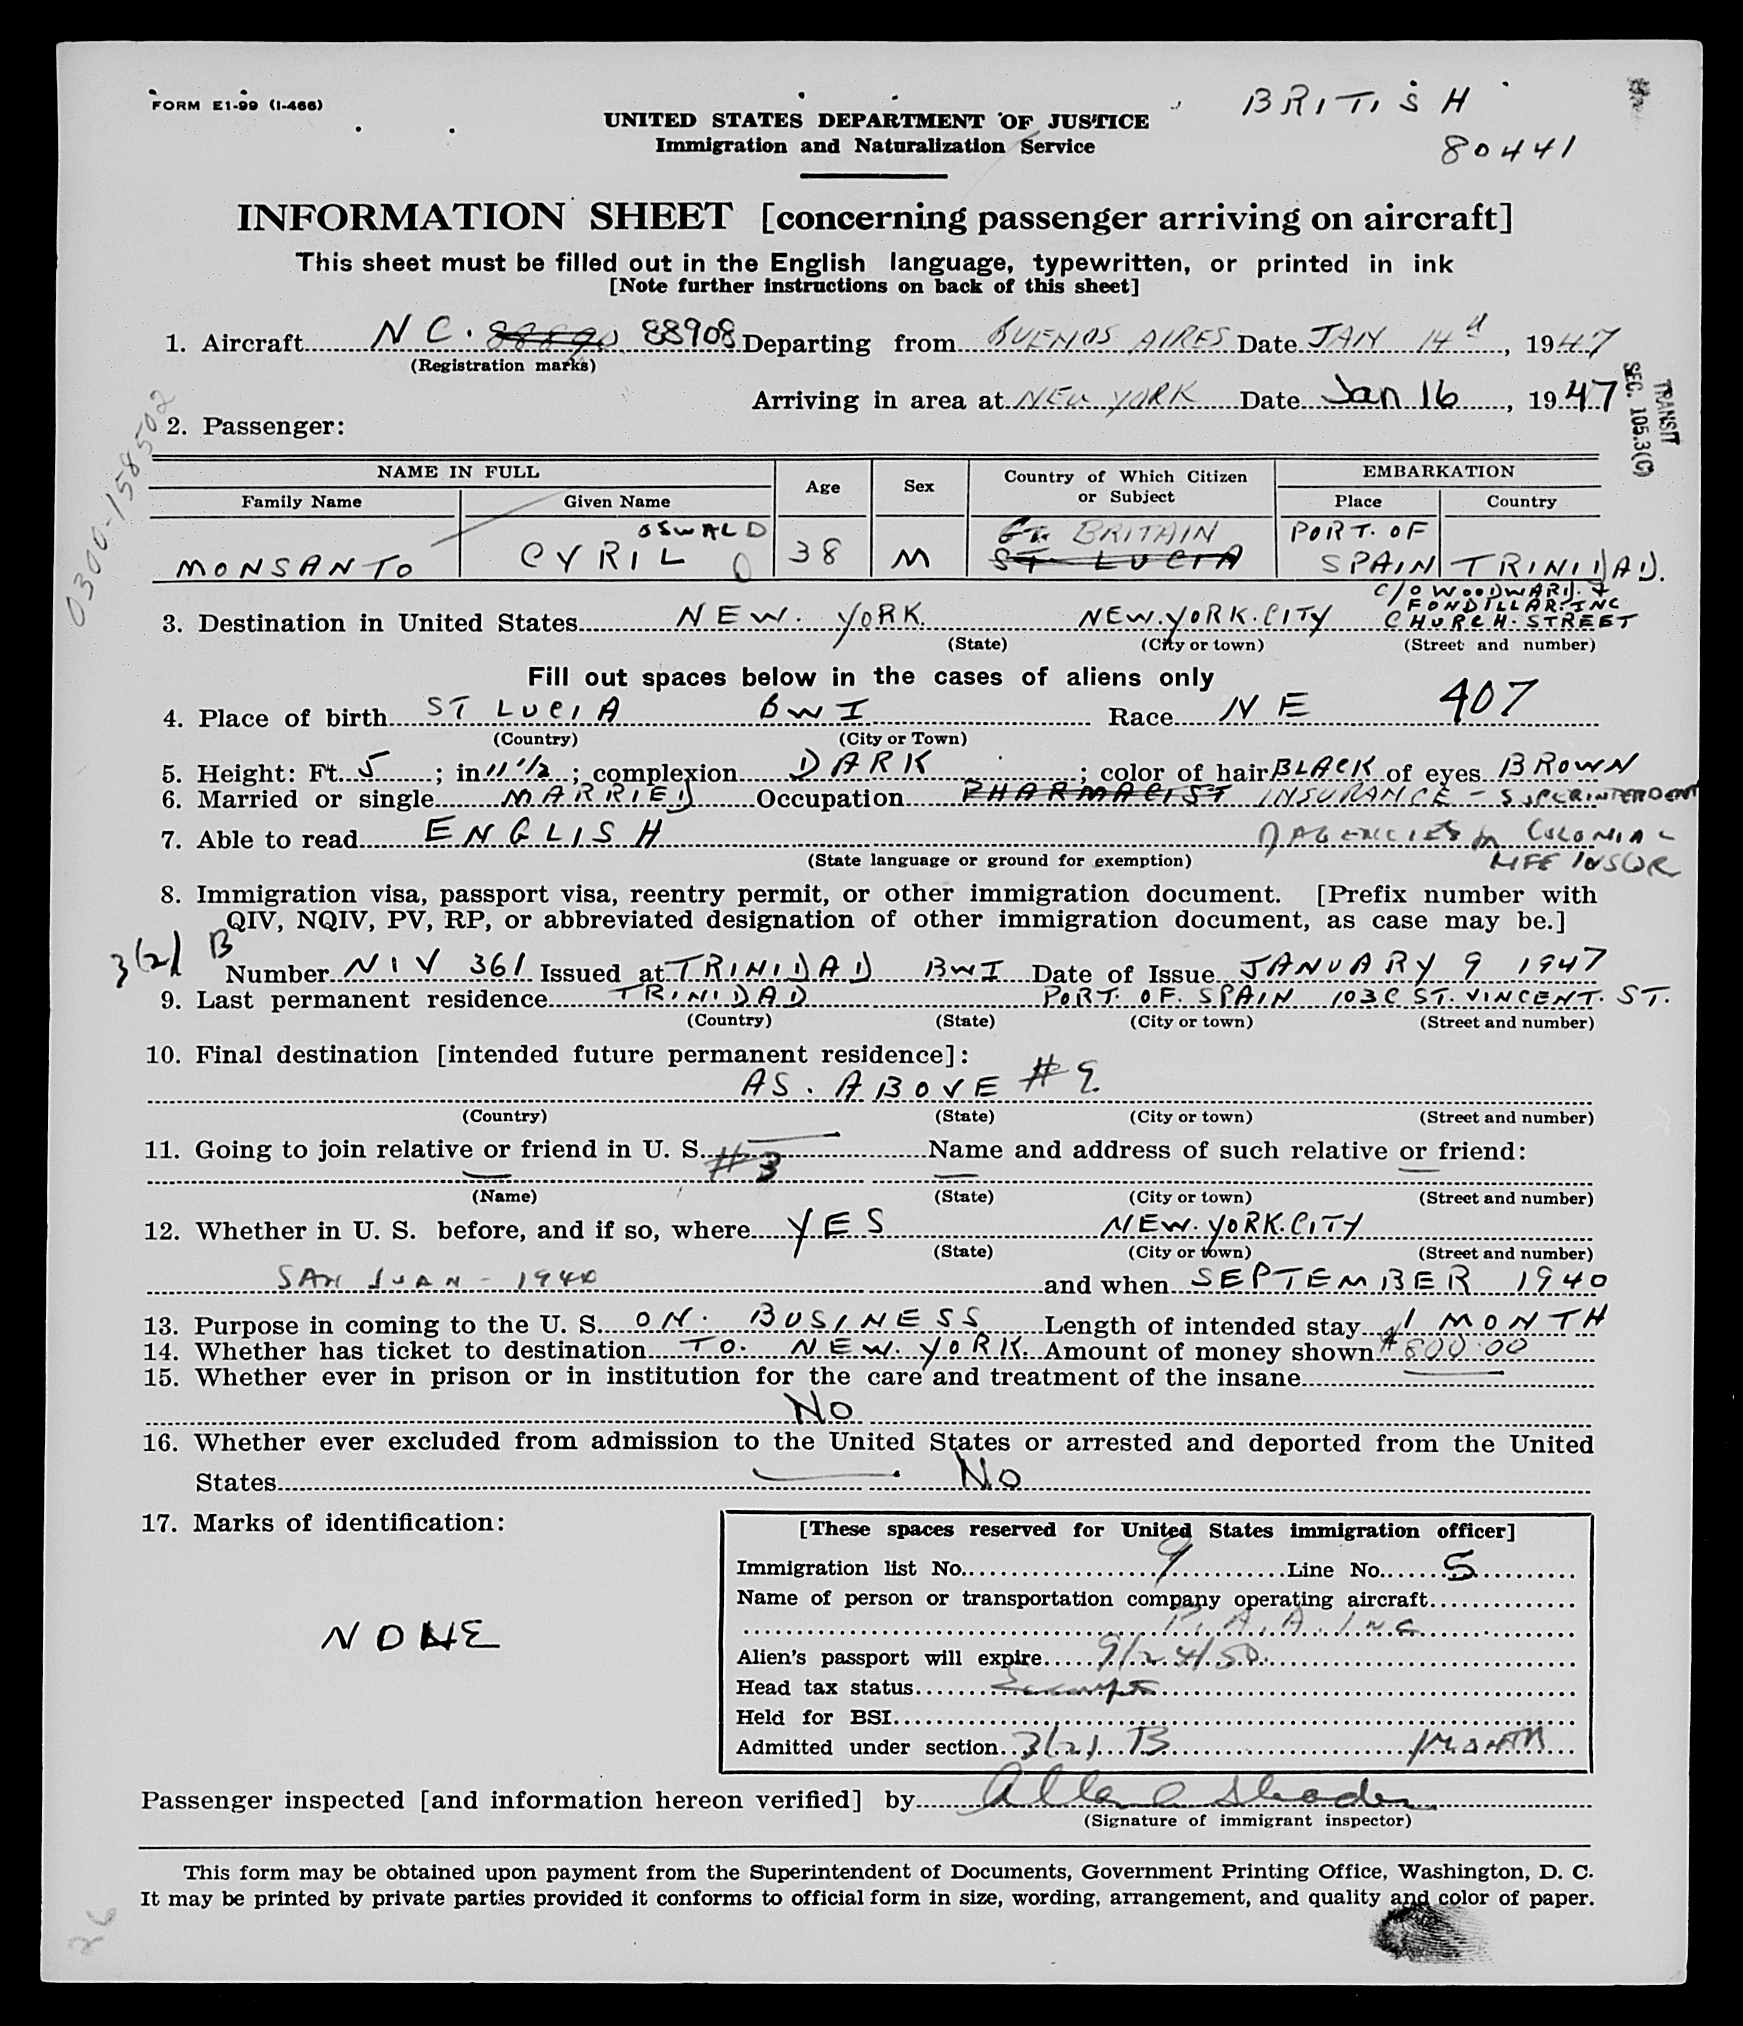 FORM E1-99 (I-466)
BRITISH
80441
UNITED STATES DEPARTMENT OF JUSTICE
Immigration and Naturalization Service
INFORMATION SHEET [concerning passenger arriving on aircraft]
This sheet must be filled out in the English language, typewritten, or printed in ink
[Note further instructions on back of this sheet]
1. Aircraft NC. 88908 Departing from BUENOS AIRES Date JAN 14, 1947
(Registration marks)
Arriving in area at NEW YORK Date Jan 16, 1947
TRANSIT
SEC. 105.3(C)
0300-158502
2. Passenger:
NAME IN FULL Age Sex Country of Which Citizen or Subject EMBARKATION
Family Name Given Name Place Country
OSWALD Gt. BRITAIN PORT. OF
MONSANTO CYRIL O 38 M ST LUCIA SPAIN TRINIDAD.
C/O WOODWARD. &
FONDILLAR. INC
3. Destination in United States NEW. YORK. NEW. YORK. CITY CHURCH. STREET
(State) (City or town) (Street and number)
Fill out spaces below in the cases of aliens only
4. Place of birth ST LUCIA BWI Race NE 407
(Country) (City or Town)
5. Height: Ft. 5; in 11 1/2; complexion DARK; color of hair BLACK of eyes BROWN
6. Married or single MARRIED Occupation PHARMACIST INSURANCE - SUPERINTENDENT
7. Able to read ENGLISH of AGENCIES COLONIAL
(State language or ground for exemption) LIFE INSUR
8. Immigration visa, passport visa, reentry permit, or other immigration document. [Prefix number with
QIV, NQIV, PV, RP, or abbreviated designation of other immigration document, as case may be.]
3(2) B
Number NIV 361 Issued at TRINIDAD BWI Date of Issue JANUARY 9 1947
9. Last permanent residence TRINIDAD PORT. OF. SPAIN 103C ST. VINCENT. ST.
(Country) (State) (City or town) (Street and number)
10. Final destination [intended future permanent residence]:
AS. ABOVE # 9
(Country) (State) (City or town) (Street and number)
11. Going to join relative or friend in U. S. #3 Name and address of such relative or friend:
(Name) (State) (City or town) (Street and number)
12. Whether in U. S. before, and if so, where YES NEW. YORK. CITY
(State) (City or town) (Street and number)
SAN JUAN - 1940 and when SEPTEMBER 1940
13. Purpose in coming to the U. S. ON. BUSINESS Length of intended stay 1 MONTH
14. Whether has ticket to destination TO. NEW. YORK. Amount of money shown $800.00
15. Whether ever in prison or in institution for the care and treatment of the insane
No
16. Whether ever excluded from admission to the United States or arrested and deported from the United
States No
17. Marks of identification:
NONE
[These spaces reserved for United States immigration officer]
Immigration list No. 9 Line No. 5
Name of person or transportation company operating aircraft
P. A. A. INC
Alien's passport will expire 9/24/50
Head tax status Exempt
Held for BSI
Admitted under section 3(2) B 1 MONTH
Passenger inspected [and information hereon verified] by
(Signature of immigrant inspector)
This form may be obtained upon payment from the Superintendent of Documents, Government Printing Office, Washington, D. C.
It may be printed by private parties provided it conforms to official form in size, wording, arrangement, and quality and color of paper.
26